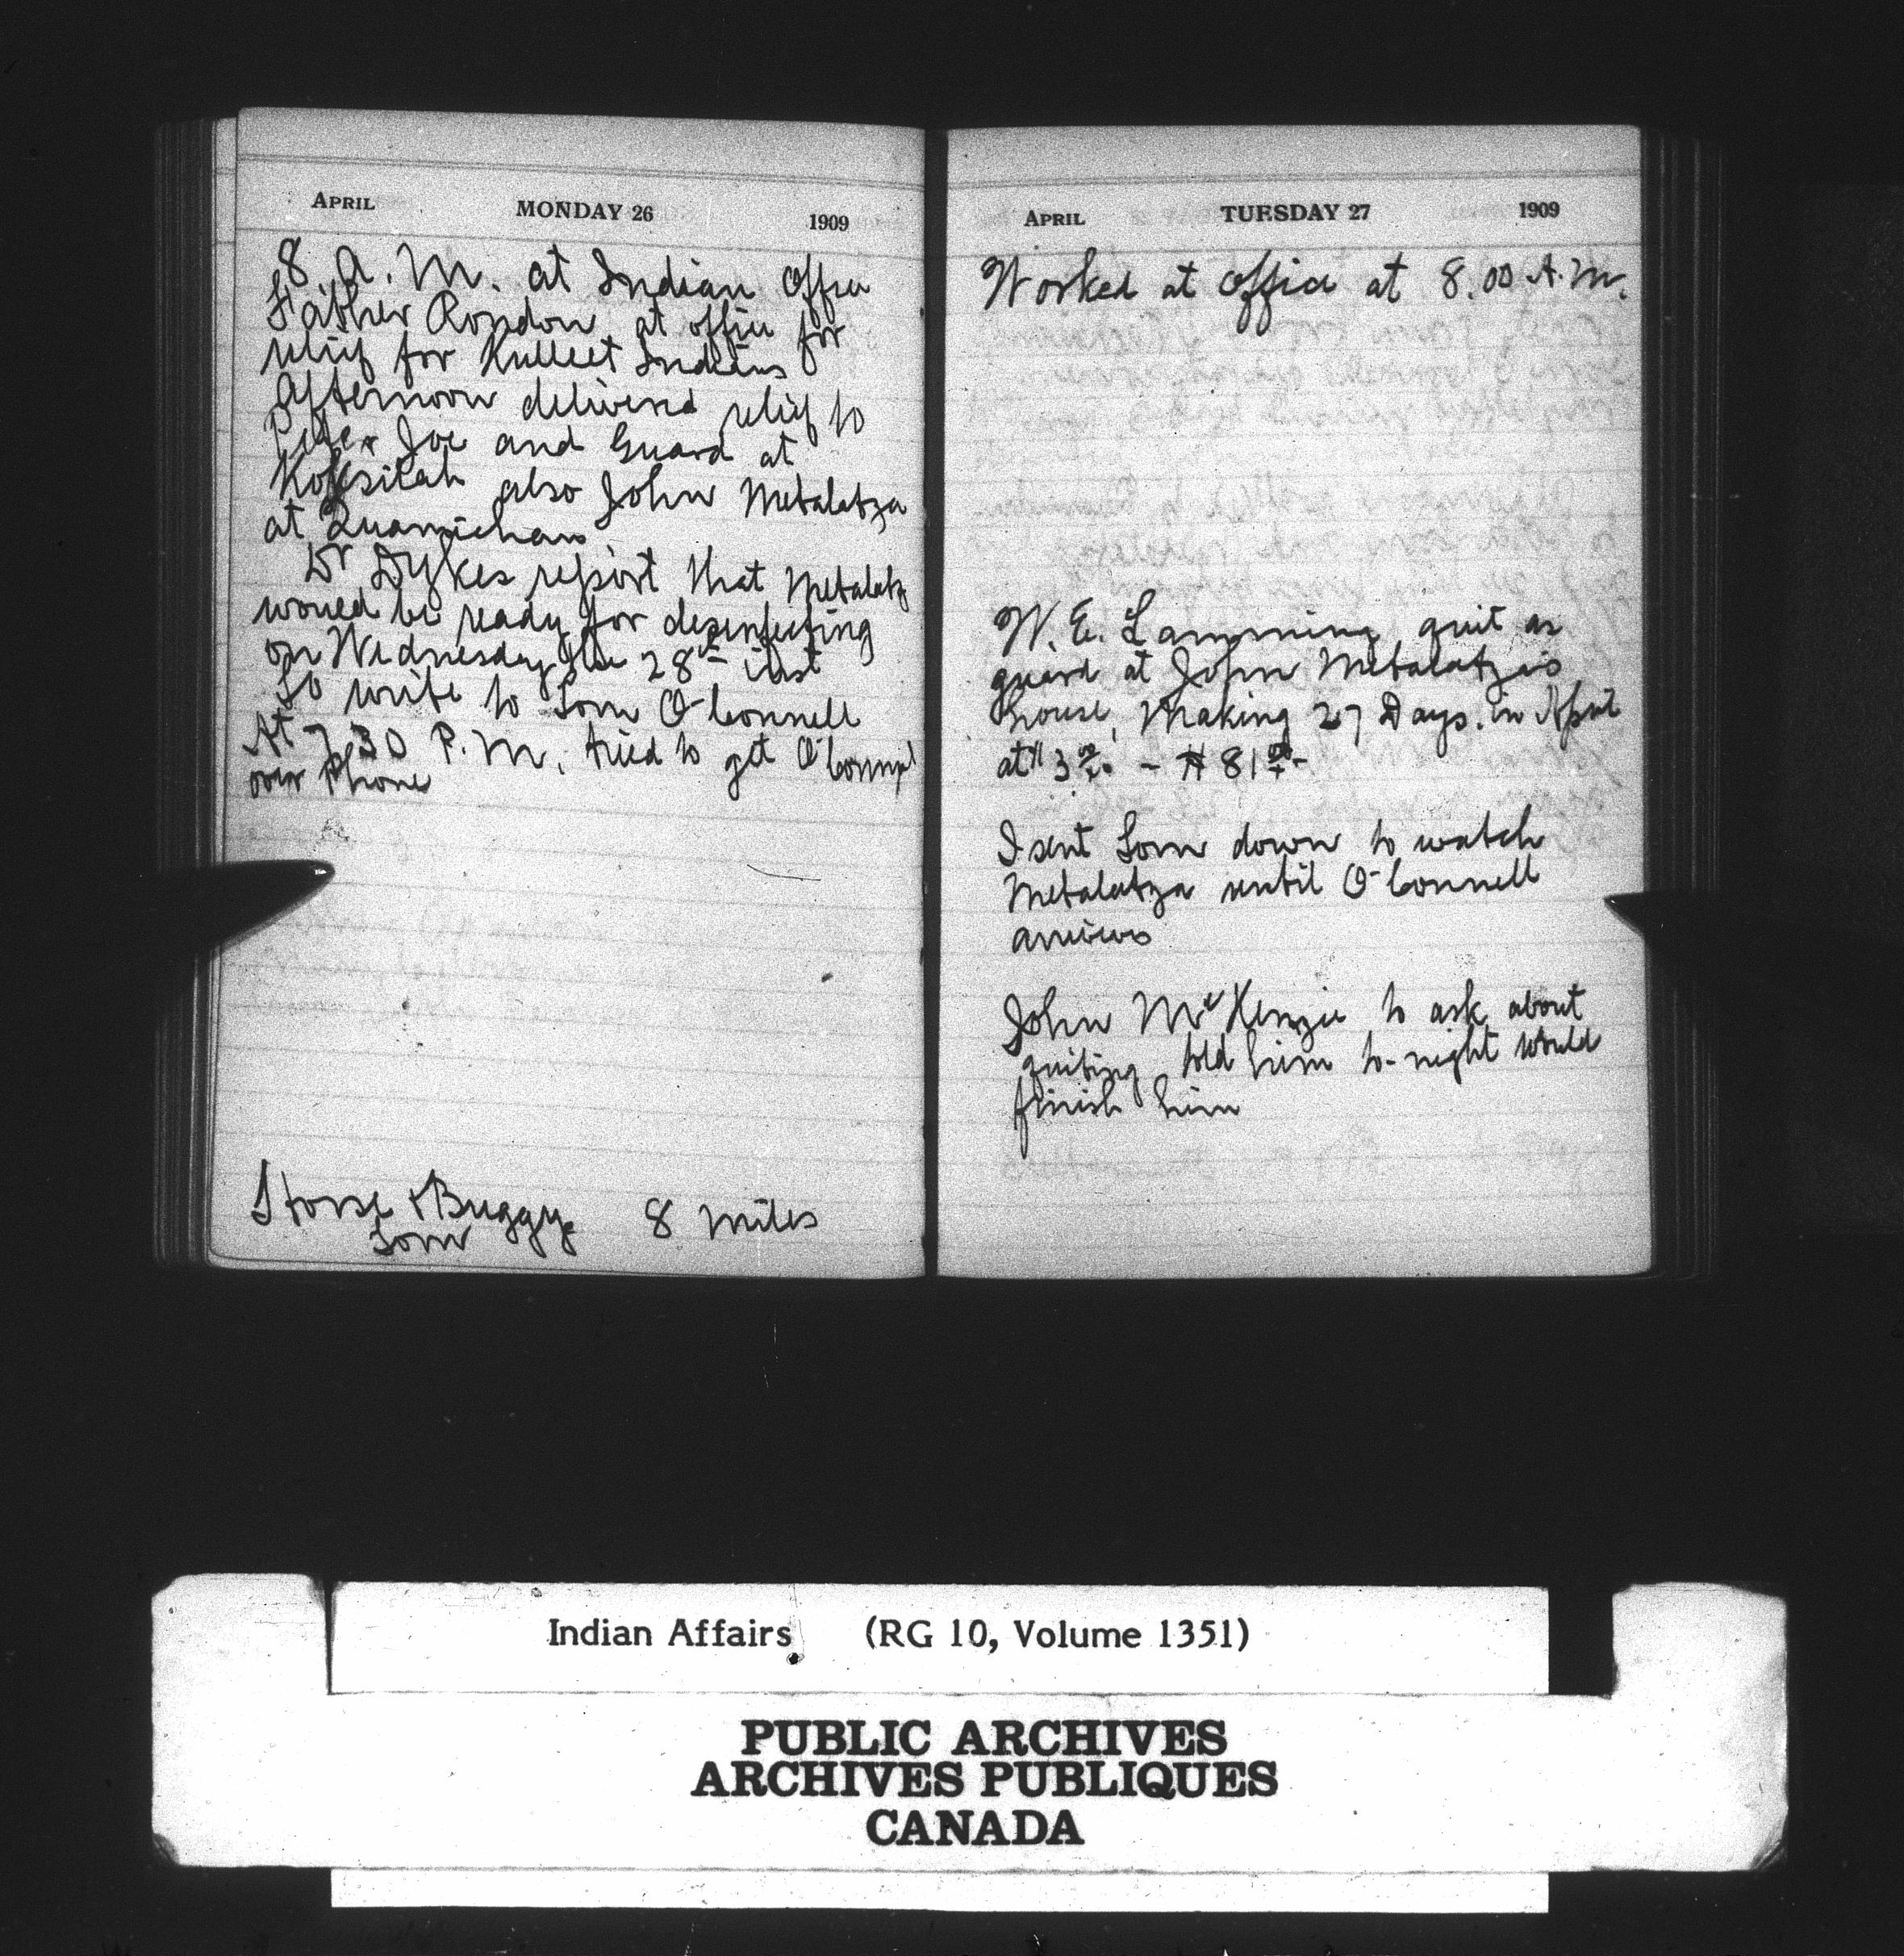 APRIL MONDAY 26 1909
8 A.M. at Indian Office
Father Rondon at office for
relief for Kulleet Indians
Afternoon delivered relief to
Peter Joe and Guard at
Koksilah also John Metalatza
at Quamichan
Dr Dykes report that Metalatz
would be ready for desinfecting
on Wednesday the 28th inst
So write to Tom O'Connell
At 7.30 P.M. tried to get O'Connel
over Phone
Horse & Buggy 8 miles
Tom
APRIL TUESDAY 27 1909
Worked at office at 8.00 A.M.
W. E. Lamming quit as
guard at John Metalatza's
house, Making 27 Days in April
at $ 3.00 - $ 81.00
I sent Tom down to watch
Metalatza until O'Connell
arrives
John McKenzie to ask about
quiting told him to-night would
finish him
Indian Affairs (RG 10, Volume 1351)
PUBLIC ARCHIVES
ARCHIVES PUBLIQUES
CANADA